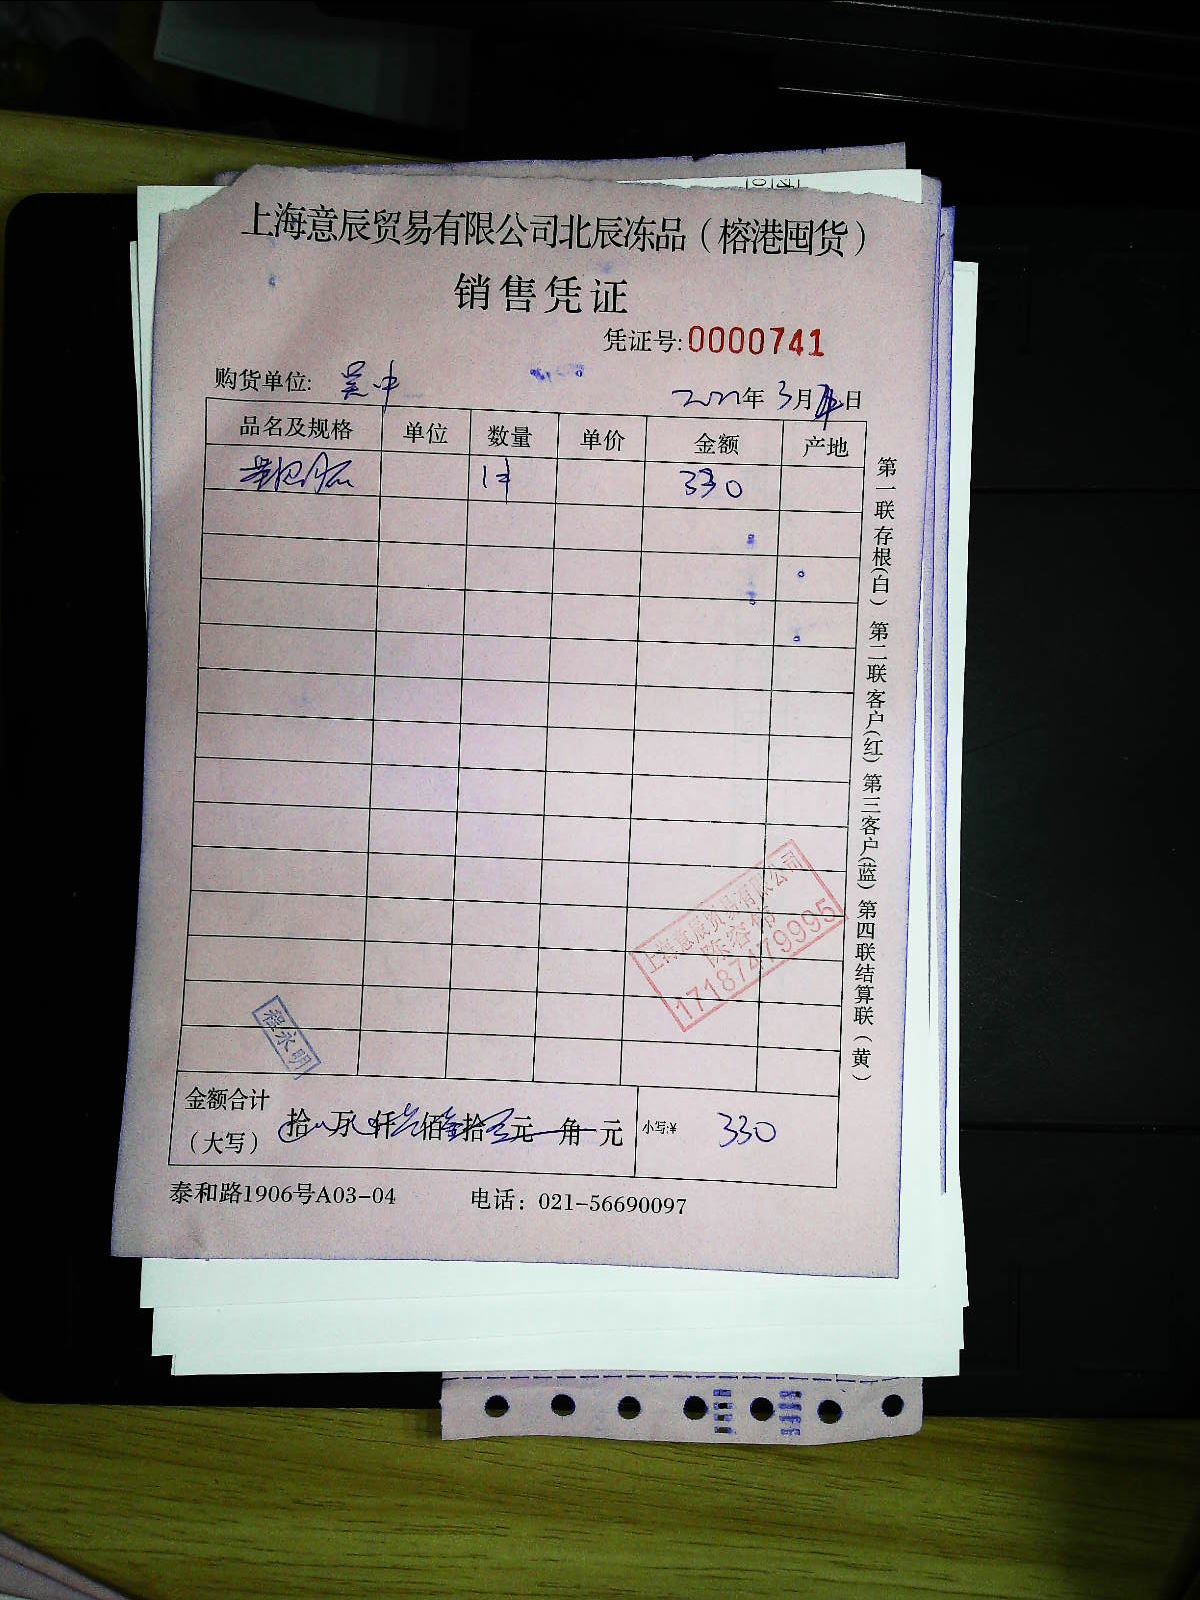 上海意辰贸易有限公司北辰冻品（榕港囤货）
销售凭证
凭证号:0000741
购货单位: 吴中
年 3月 日
品名及规格 单位 数量 单价 金额 产地
1件 330
第一联存根(白) 第二联客户(红) 第三客户(蓝) 第四联结算联(黄)
上海意辰贸易有限公司
陈容伟
17187479995
程永明
金额合计
（大写） 拾 万 仟 佰 拾 元 角 元 小写:¥ 330
泰和路1906号A03-04 电话：021-56690097